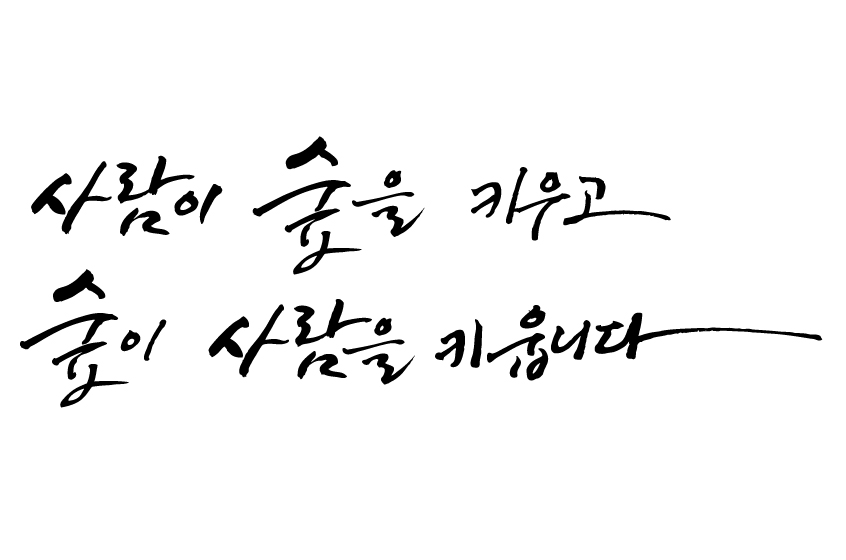 사람이 숲을 키우고
숲이 사람을 키웁니다